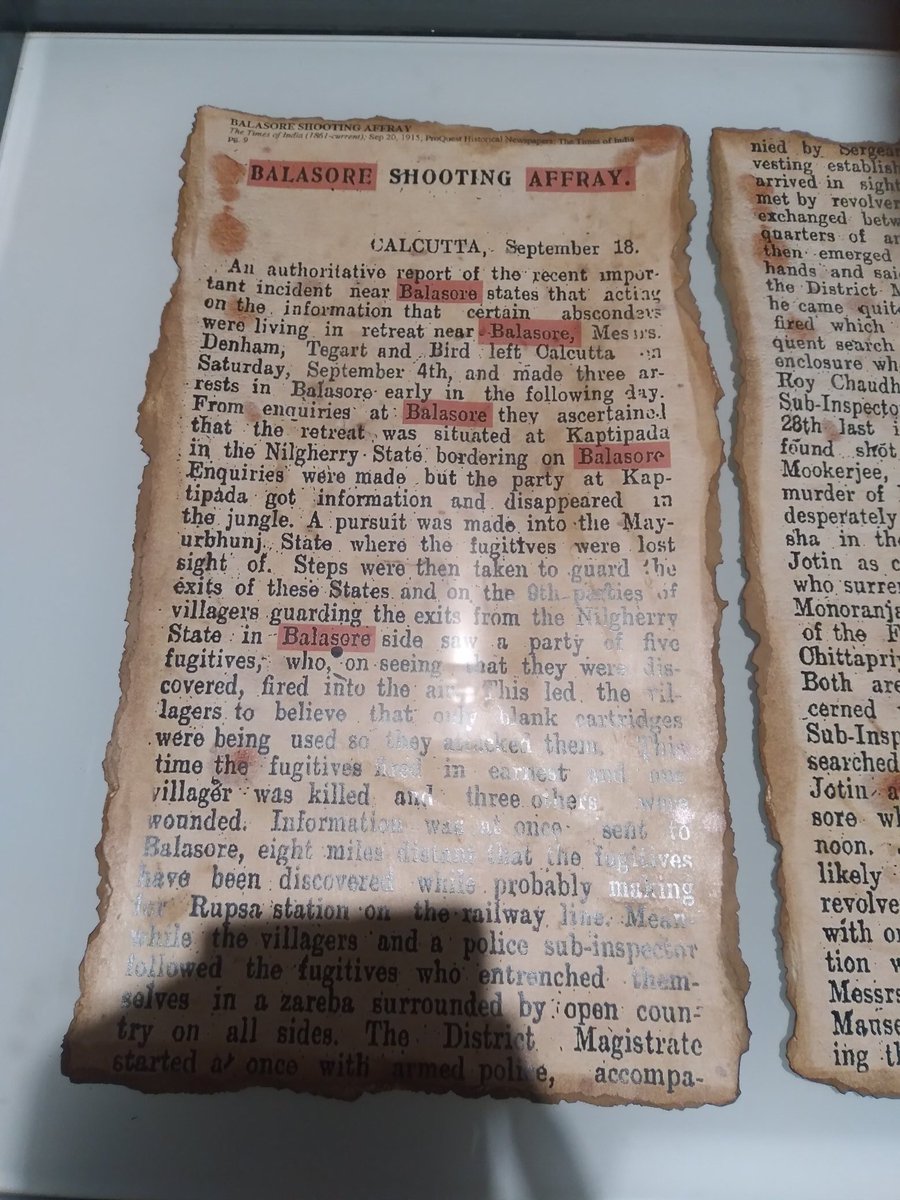 BALASORE SHOOTING AFFRAY
The Times of India (1861-current); Sep 20, 1915; ProQuest Historical Newspapers: The Times of India
pg. 9
BALASORE SHOOTING AFFRAY.
CALCUTTA, September 18.
An authoritative report of the recent impor-
tant incident near Balasore states that acting
on the information that certain absconders
were living in retreat near Balasore, Messrs.
Denham, Tegart and Bird left Calcutta on
Saturday, September 4th, and made three ar-
rests in Balasore early in the following day.
From enquiries at Balasore they ascertained
that the retreat was situated at Kaptipada
in the Nilgherry State bordering on Balasore
Enquiries were made but the party at Kap-
tipada got information and disappeared in
the jungle. A pursuit was made into the May-
urbhunj State where the fugitives were lost
sight of. Steps were then taken to guard the
exits of these States and on the 9th parties of
villagers guarding the exits from the Nilgherry
State in Balasore side saw a party of five
fugitives, who, on seeing that they were dis-
covered, fired into the air. This led the vil-
lagers to believe that only blank cartridges
were being used so they attacked them. This
time the fugitives fired in earnest and one
villager was killed and three others were
wounded. Information was at once sent to
Balasore, eight miles distant that the fugitives
have been discovered while probably making
for Rupsa station on the railway line. Mean-
while the villagers and a police sub-inspector
followed the fugitives who entrenched them-
selves in a zareba surrounded by open coun-
try on all sides. The District Magistrate
started at once with armed police, accompa-
nied by Sergean
vesting establis
arrived in sight
met by revolver
exchanged betw
quarters of an
then emerged
hands and said
the District M
he came quite
fired which
quent search
enclosure wh
Roy Chaudh
Sub-Inspecto
28th last i
found shot
Mookerjee,
murder of
desperately
sha in the
Jotin as c
who surren
Monoranja
of the F
Chittapriy
Both are
cerned
Sub-Insp
searched
Jotin a
sore wh
noon.
likely
revolve
with or
tion w
Messrs
Mause
ing th